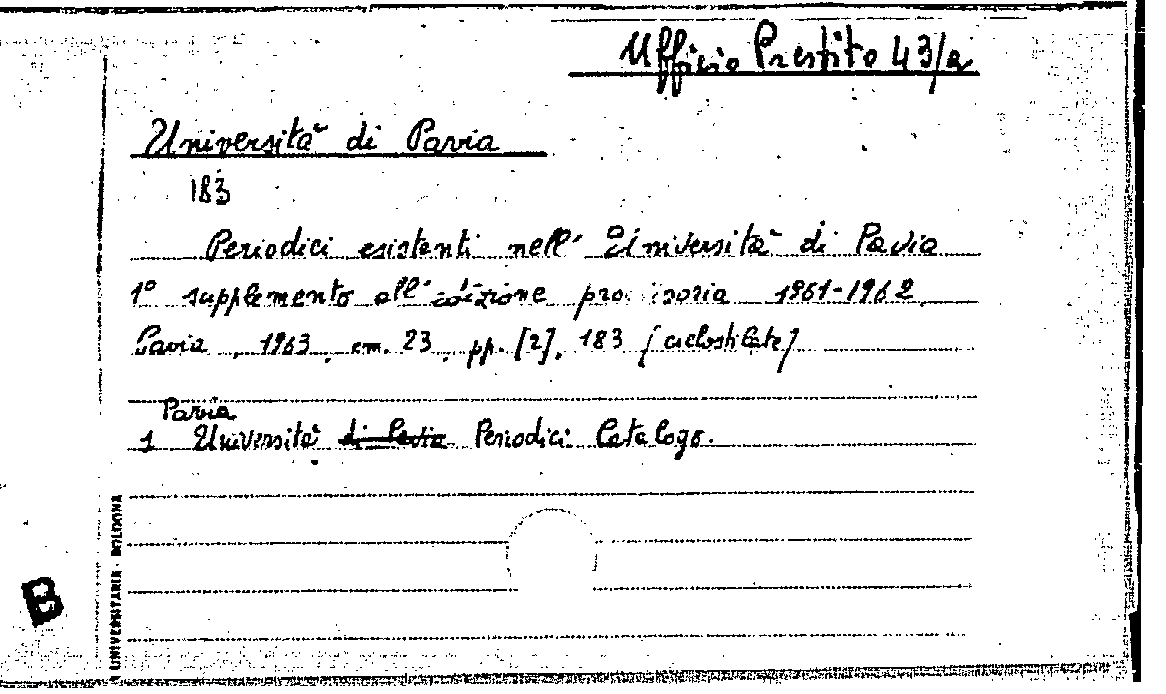 Ufficio Prestito 43/a
Università di Pavia
183
Periodici esistenti nell' Università di Pavia
1° supplemento all'edizione provvisoria 1961-1962.
Pavia, 1963, cm. 23, pp. [2], 183 [ciclostilate]
Pavia
1 Università di Pavia Periodici Catalogo.
UNIVERSITARIA - BOLOGNA
B